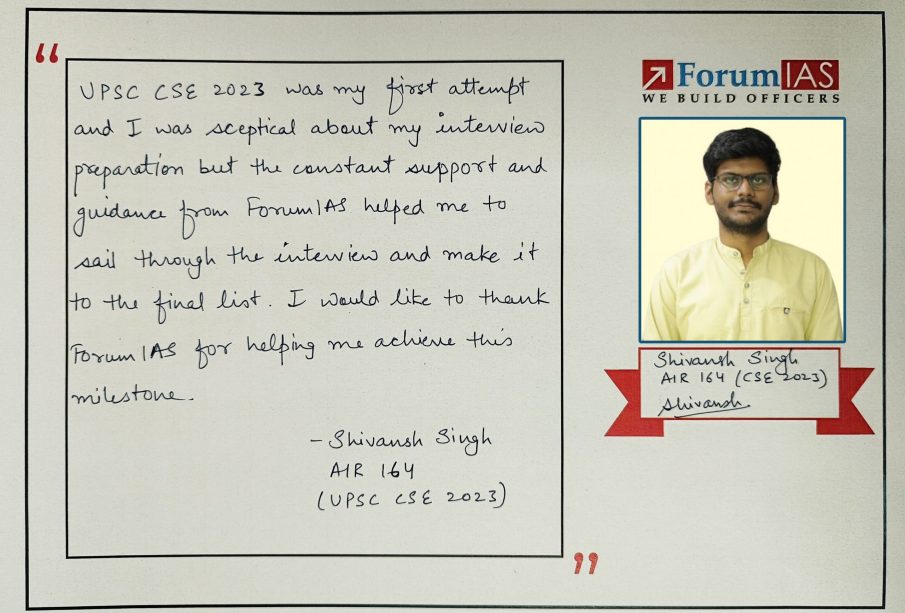 UPSC CSE 2023 was my first attempt
and I was sceptical about my interview
preparation but the constant support and
guidance from ForumIAS helped me to
sail through the interview and make it
to the final list. I would like to thank
ForumIAS for helping me achieve this
milestone.
- Shivansh Singh
AIR 164
(UPSC CSE 2023)
ForumIAS
WE BUILD OFFICERS
Shivansh Singh
AIR 164 (CSE 2023)
Shivansh